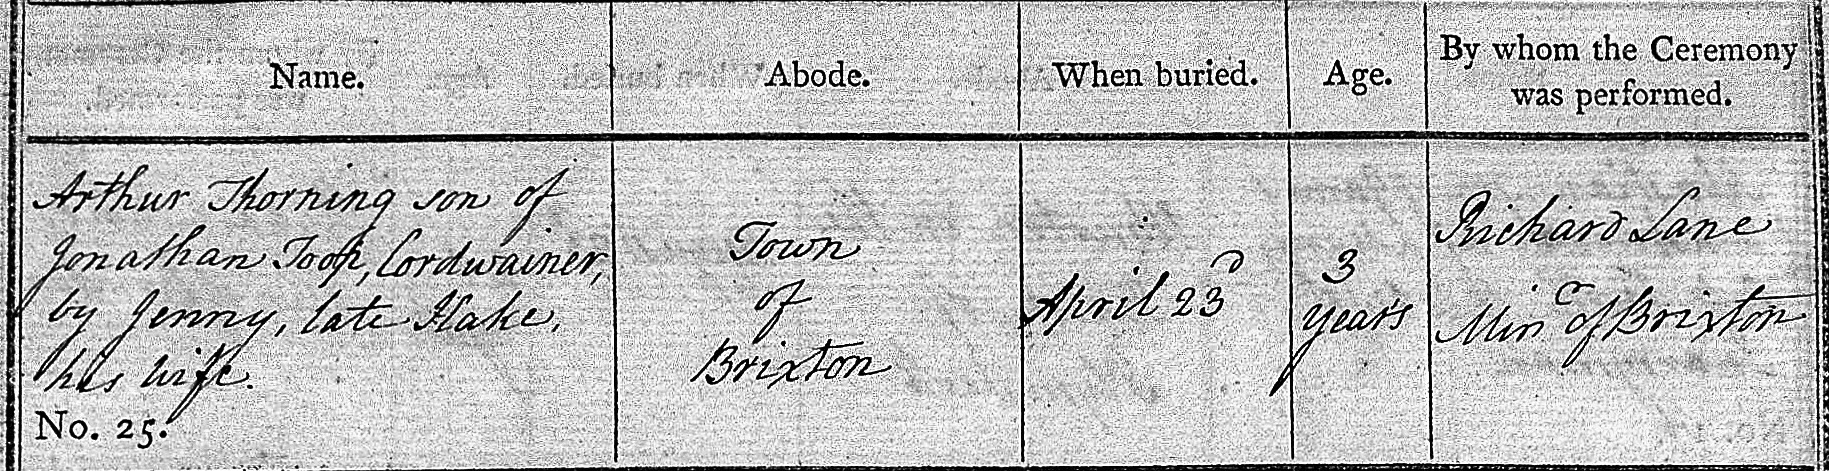 Name.
Abode.
When buried.
Age.
By whom the Ceremony
was performed.
Arthur Thorning son of
Jonathan Toop, Cordwainer,
by Jenny, late Hake,
his wife.
No. 25.
Town
of
Brixton
April 23d
3
years
Richard Lane
Minr of Brixton